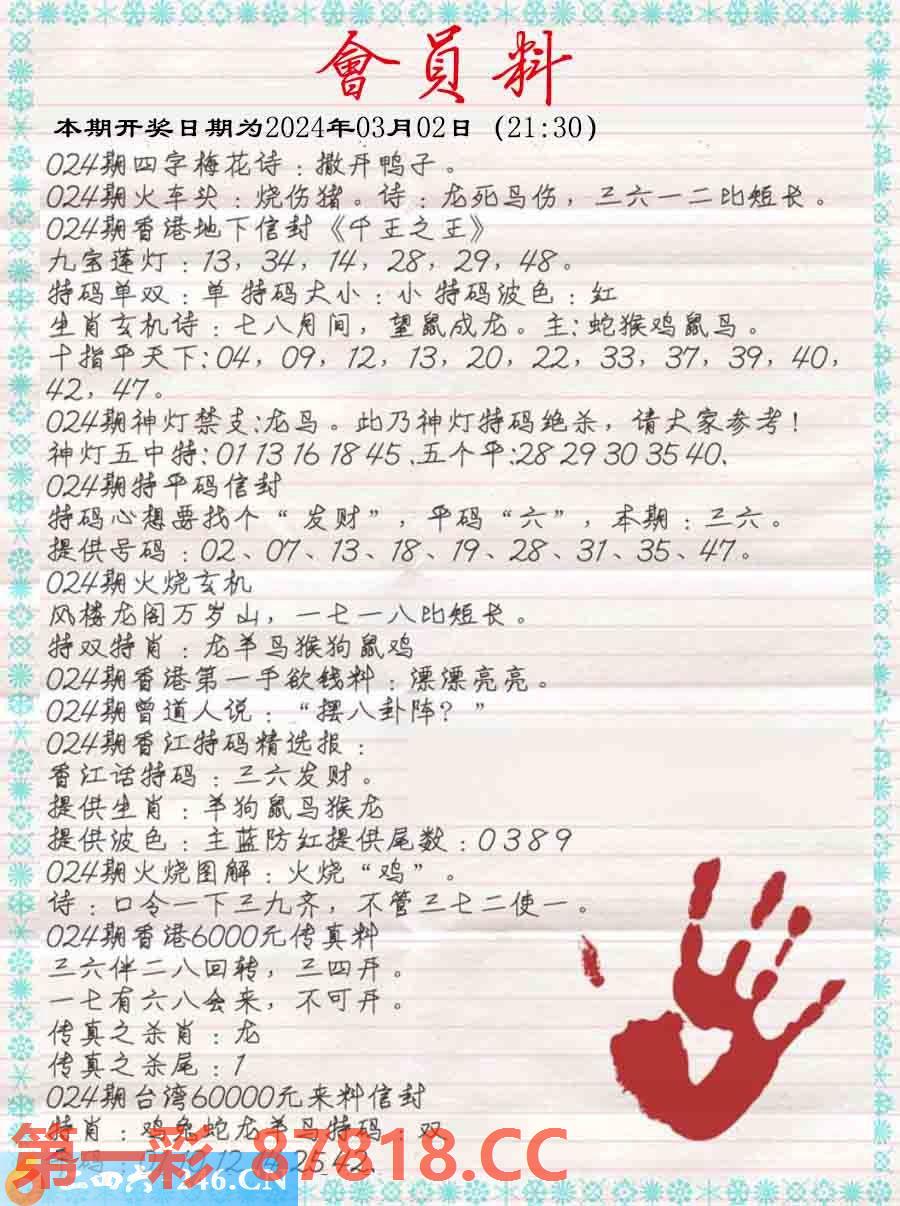 會員料
本期开奖日期为2024年03月02日（21:30）
024期四字梅花诗：撒开鸭子。
024期火车头：烧伤猪。诗：龙死鸟伤，三六一二比短长。
024期香港地下信封《千王之王》
九宝莲灯：13，34，14，28，29，48。
特码单双：单 特码大小：小 特码波色：红
生肖玄机诗：七八月间，望鼠成龙。主：蛇猴鸡鼠马。
十指平天下：04，09，12，13，20，22，33，37，39，40，
42，47。
024期神灯禁支：龙马。此乃神灯特码绝杀，请大家参考！
神灯五中特：01 13 16 18 45、五个平：28 29 30 35 40、
024期特平码信封
特码心想要找个“发财”，平码“六”，本期：三六。
提供号码：02、07、13、18、19、28、31、35、47。
024期火烧玄机
风楼龙阁万岁山，一七一八比短长。
特双特肖：龙羊马猴狗鼠鸡
024期香港第一手欲钱料：漂漂亮亮。
024期曾道人说：“摆八卦阵？”
024期香江特码精选报：
香江话特码：三六发财。
提供生肖：羊狗鼠马猴龙
提供波色：主蓝防红提供尾数：0 3 8 9
024期火烧图解：火烧“鸡”。
诗：口令一下三九齐，不管三七二使一。
024期香港6000元传真料
三六伴二八回转，三四开。
一七有六八会来，不可开。
传真之杀肖：龙
传真之杀尾：1
024期台湾60000元来料信封
特肖：鸡兔蛇龙羊马特码：双
12 14 25 42、
第一彩 87818.CC
二四六 246.CN